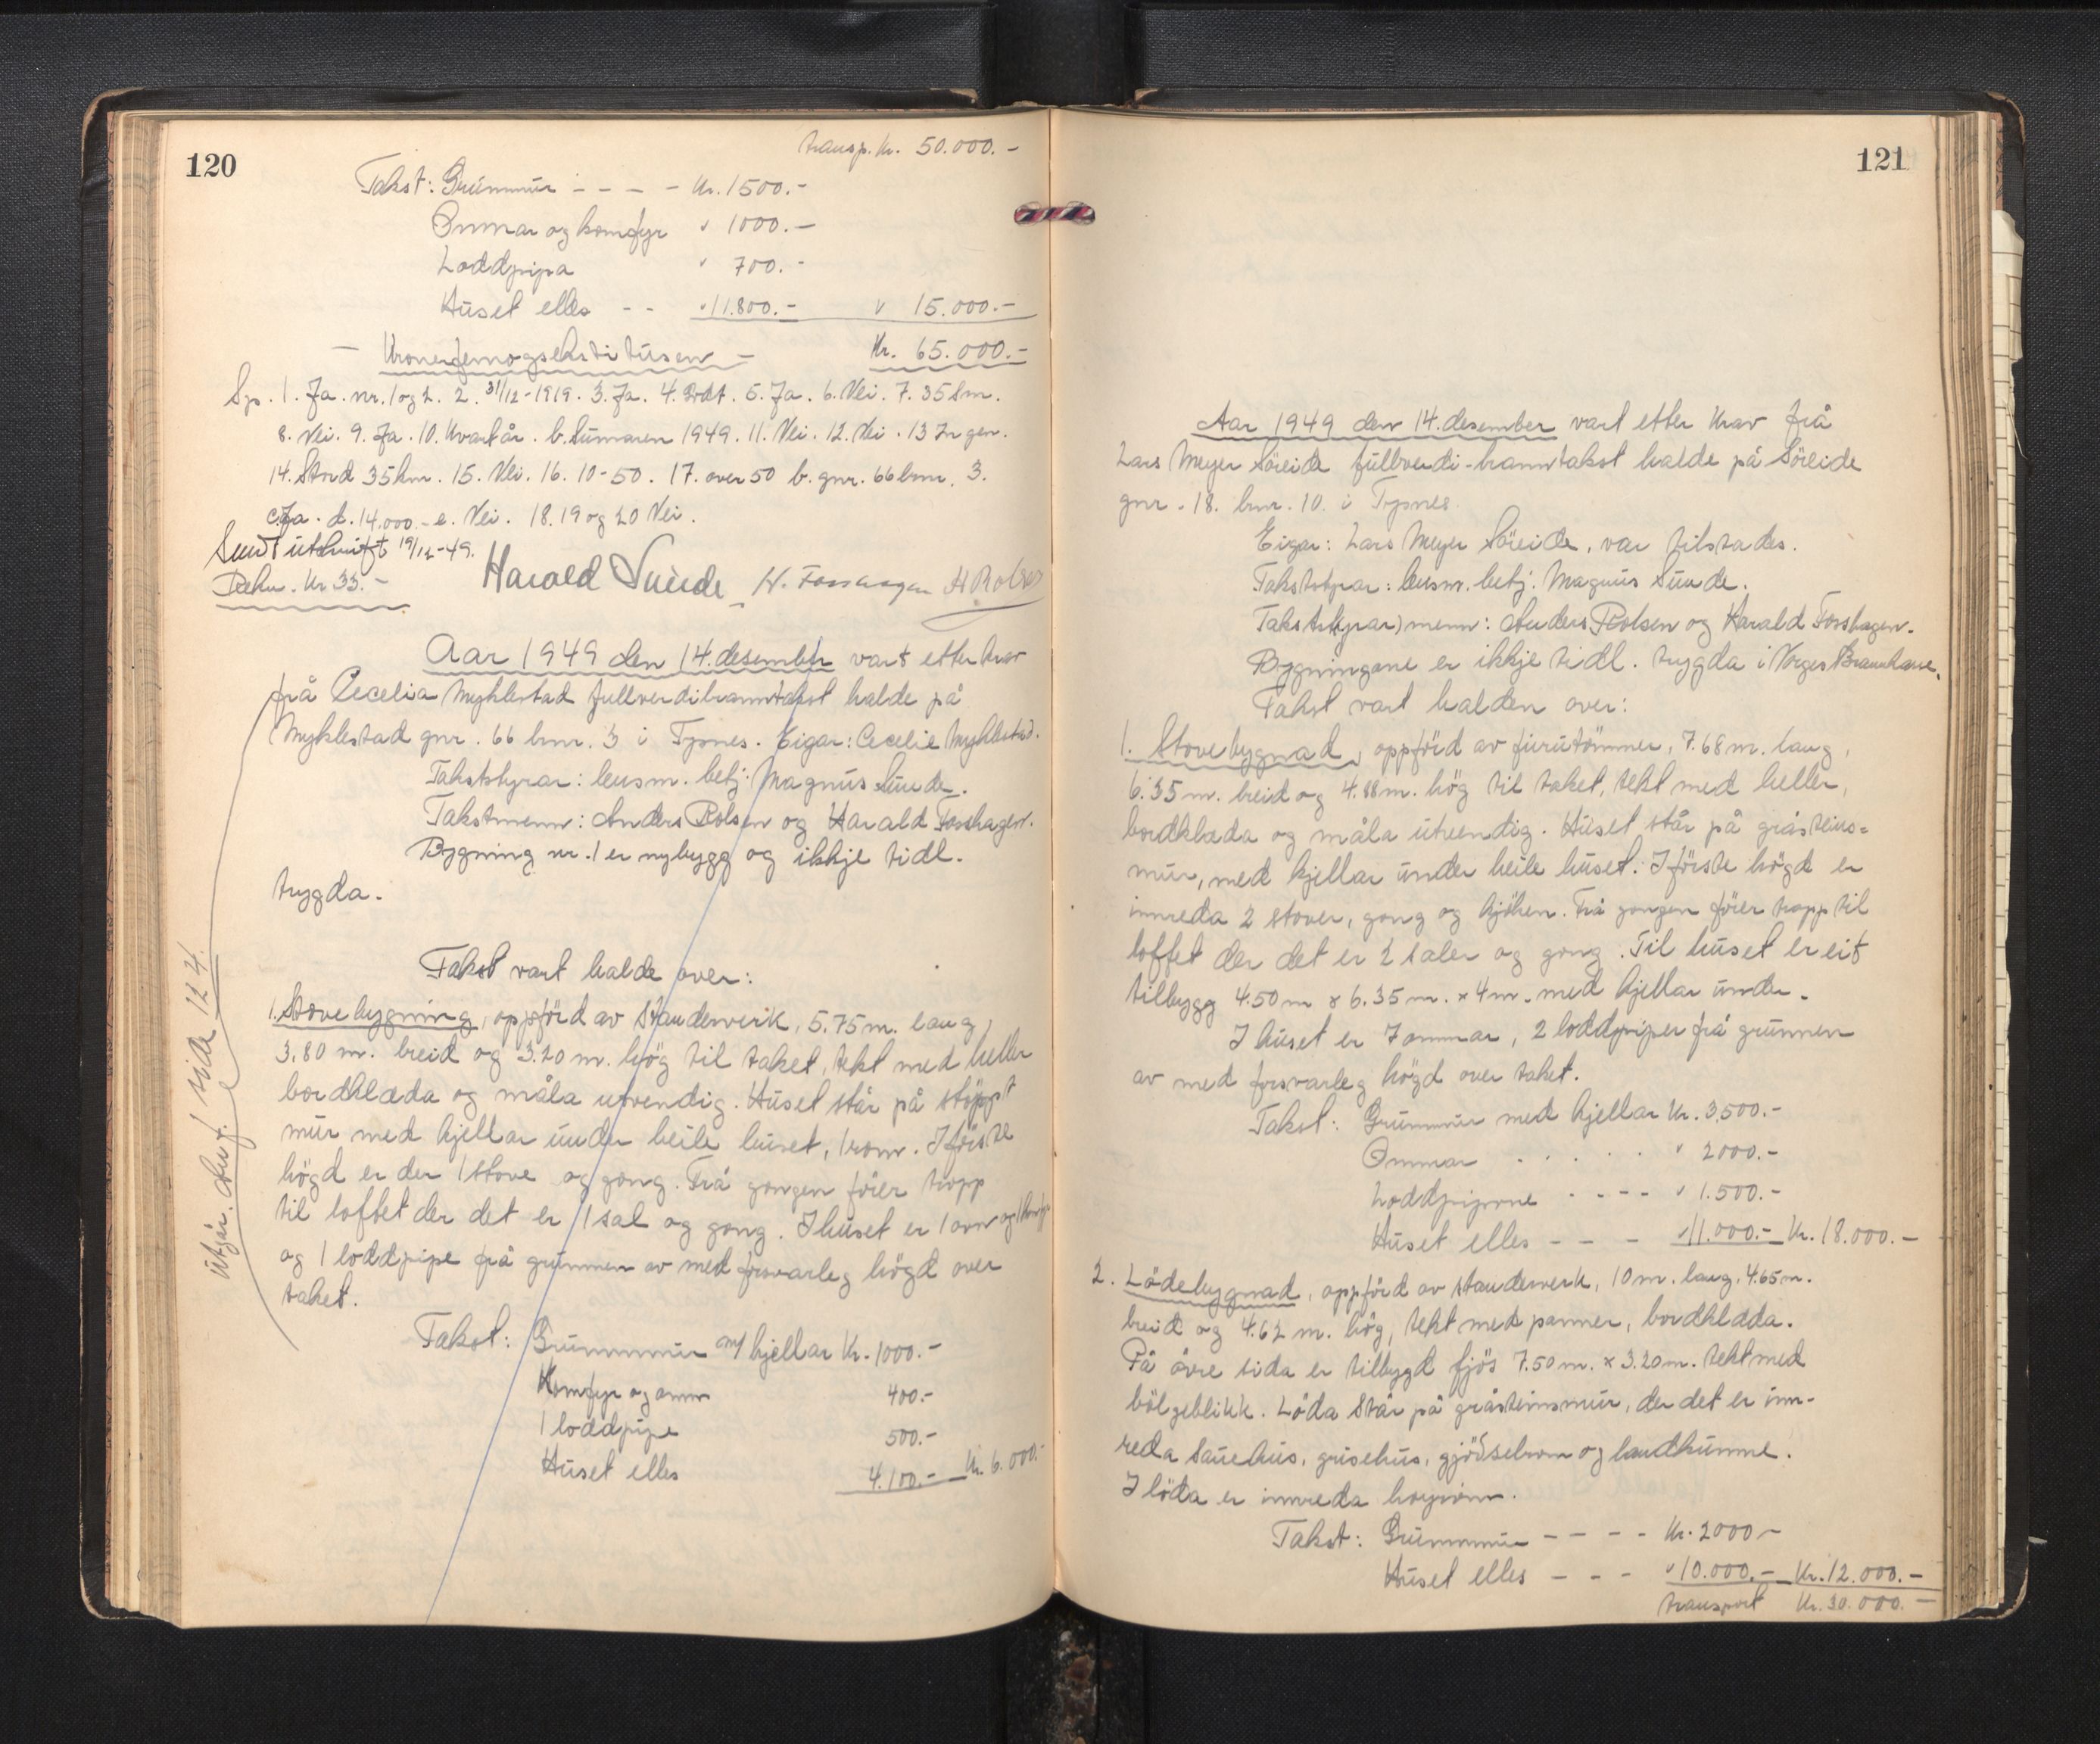 120
transp. kr. 50.000.-
Takst: Grunnmur - - - - Kr. 1500.-
Omnar og komfyr " 1000.-
Loddpipa " 700.-
Huset elles - - " 11.800.- " 15.000.-
- Kronerfemogsekstitusen - Kr. 65.000.-
Sp. 1. Ja. nr. 1 og 2. 2. 31/12-1919. 3. Ja. 4. Godt. 5. Ja. 6. Nei. 7. 35 km.
8. Nei. 9. Ja. 10. Kvart år. b. Sumaren 1949. 11. Nei. 12. Nei. 13 Ingen.
14. Stord 35 km. 15. Nei. 16. 10-50. 17. over 50 b. gnr. 66 bnr. 3.
c. Ja. d. 14.000.- e. Nei. 18. 19 og 20 Nei.
Sendt utskrift 19/12-49.
Rekn. kr 33.-
Harald Sunde H. Fosshagen A Rolsen
Aar 1949 den 14. desember vart etter krav
frå Cecelia Myklestad fullverdibranntakst halde på
Myklestad gnr. 66 bnr. 3 i Tysnes. Eigar: Cecelie Myklestad.
Takststyrar: lensm. betj. Magnus Sunde.
Takstmenn: Anders Rolsen og Harald Fosshagen.
Bygning nr. 1 er nybygg og ikkje tidl.
trygda.
Takst vart halde over:
1. Stovebygning, oppförd av standerverk, 5.75 m. lang,
3.80 m. breid og 3.20 m. hög til taket, tekt med heller
bordklæda og måla utvendig. Huset står på stöypt
mur med kjellar under heile huset, 1 rom. I förste
högd er der 1 stove og gong. Frå gongen förer tropp
til loftet der det er 1 sal og gong. I huset er 1 omn og 1 komfyr
og 1 loddpipe frå grunnen av med forsvarleg högd over
taket.
Takst: Grunnmur m/ kjellar Kr. 1000.-
Komfyr og omn 400.-
1 loddpipe 500.-
Huset elles 4.100.- Kr. 6.000.-
Utgår. side 124.
121
Aar 1949 den 14. desember vart etter krav frå
Lars Meyer Söreide fullverdi-branntakst halde på Söreide
gnr. 18. bnr. 10. i Tysnes.
Eigar: Lars Meyer Söreide, var tilstades.
Takststyrar: lensm. betj. Magnus Sunde.
Takst(styrar)menn: Anders Rolsen og Harald Fosshagen.
Bygningane er ikkje tidl. trygda i Norges Brannkasse.
Takst vart halden over:
1. Stovebygnad, oppförd av furutömmer, 7.68 m. lang,
6.35 m. breid og 4.88 m. hög til taket, tekt med heller,
bordklæda og måla utvendig. Huset står på gråsteins=
mur, med kjellar under heile huset. I förste högd er
innreda 2 stover, gong og kjöken. Frå gongen förer tropp til
loftet der det er 2 saler og gong. Til huset er eit
tilbygg 4.50 m x 6.35 m. x 4 m. med kjellar under.
I huset er 7 omnar, 2 loddpiper frå grunnen
av med forsvarleg högd over taket.
Takst: Grunnmur med kjellar Kr. 3.500.-
Omnar . . . . . " 2000.-
Loddpipone - - - - " 1.500.-
Huset elles - - - " 11.000.- Kr. 18.000.-
2. Lödebygnad, oppförd av standerverk, 10 m. lang, 4.65 m.
breid og 4.62 m. hög, tekt med panner, bordklæda.
På övre sida er tilbygd fjös 7.50 m. x 3.20 m. tekt med
bölgeblikk. Löda står på gråsteinsmur, der det er inn-
reda sauehus, grisehus, gjödselrom og landkumme.
I löda er innreda höyrom.
Takst: Grunnmur - - - - Kr. 2000-
Huset elles - - - " 10.000.- Kr. 12.000.-
transport Kr. 30.000.-